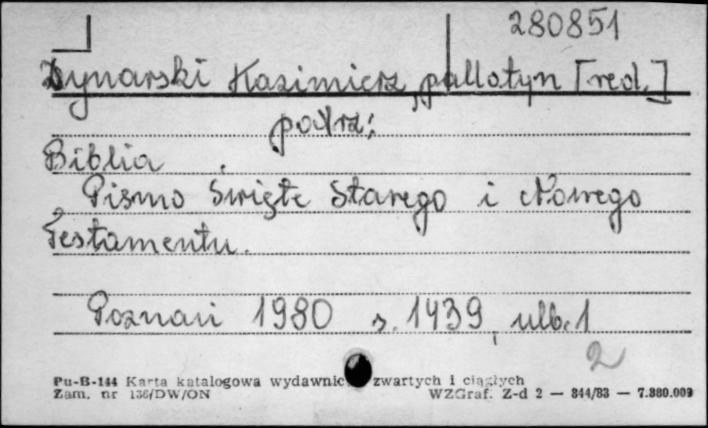 280851
Dynarski Kazimierz, pallotyn [red.]
patrz:
Biblia.
Pismo Święte Starego i Nowego
Testamentu.
Poznań 1980 s. 1439, ulb. 1
2
Pu-B-144 Karta katalogowa wydawnic zwartych i ciągłych
Zam. nr 136/DW/ON WZGraf. Z-d 2 — 844/83 — 7.380.000